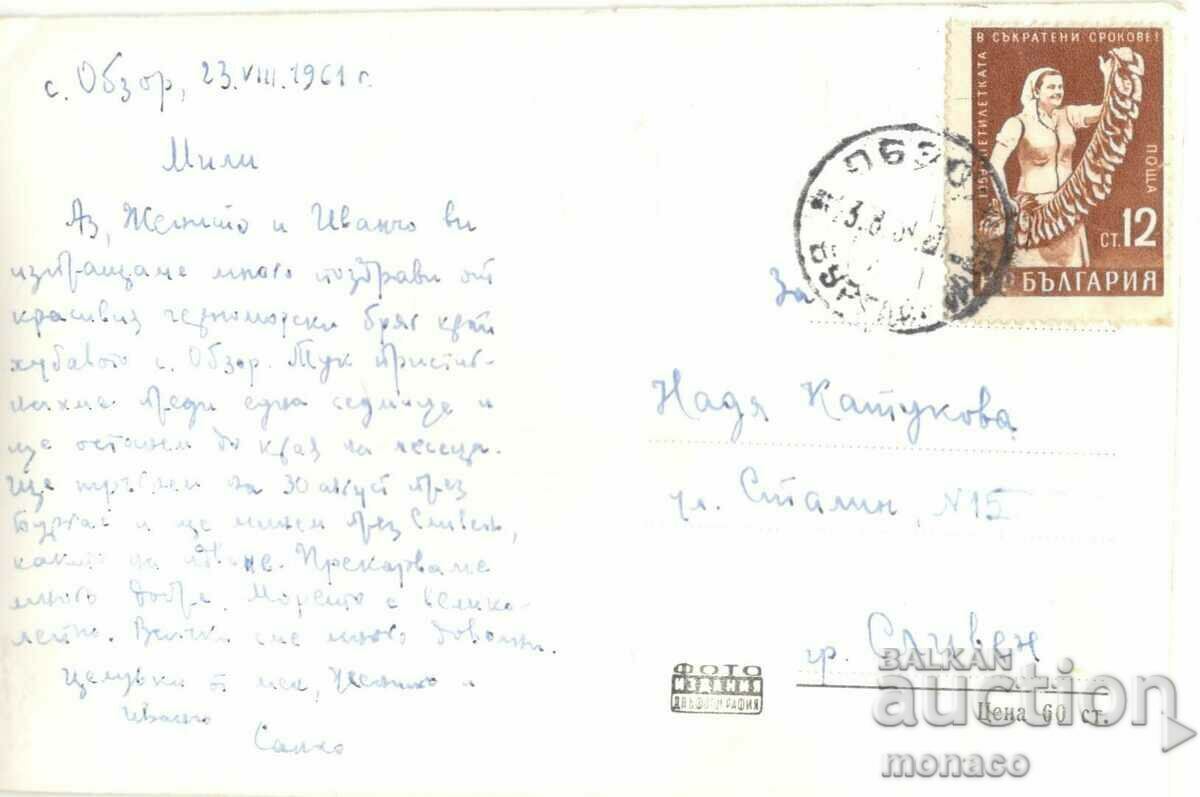 с. Обзор, 23.VIII.1961 г.
Мили
Аз, Женито и Иванчо ви
изпращаме много поздрави от
красивия черноморски бряг край
хубавото с. Обзор. Тук пристиг-
нахме преди една седмица и
ще останем до края на месеца.
Ще тръгнем на 30 август през
Бургас и ще минем през Сливен,
както на идване. Прекарваме
много добре. Морето е велико-
лепно. Всички сме много доволни.
Целувки от мен, Женито и
Иванчо
Санко
В СЪКРАТЕНИ СРОКОВЕ!
ПЕТИЛЕТКАТА
ПОЩА
СТ. 12
НР БЪЛГАРИЯ
ОБЗОР
За
Надя Катукова
ул. Сталин, N15
гр. Сливен
ФОТО
ИЗДАНИЯ
ДПК ФОТОГРАФИЯ
Цена 60 ст.
BALKAN
auction
monaco